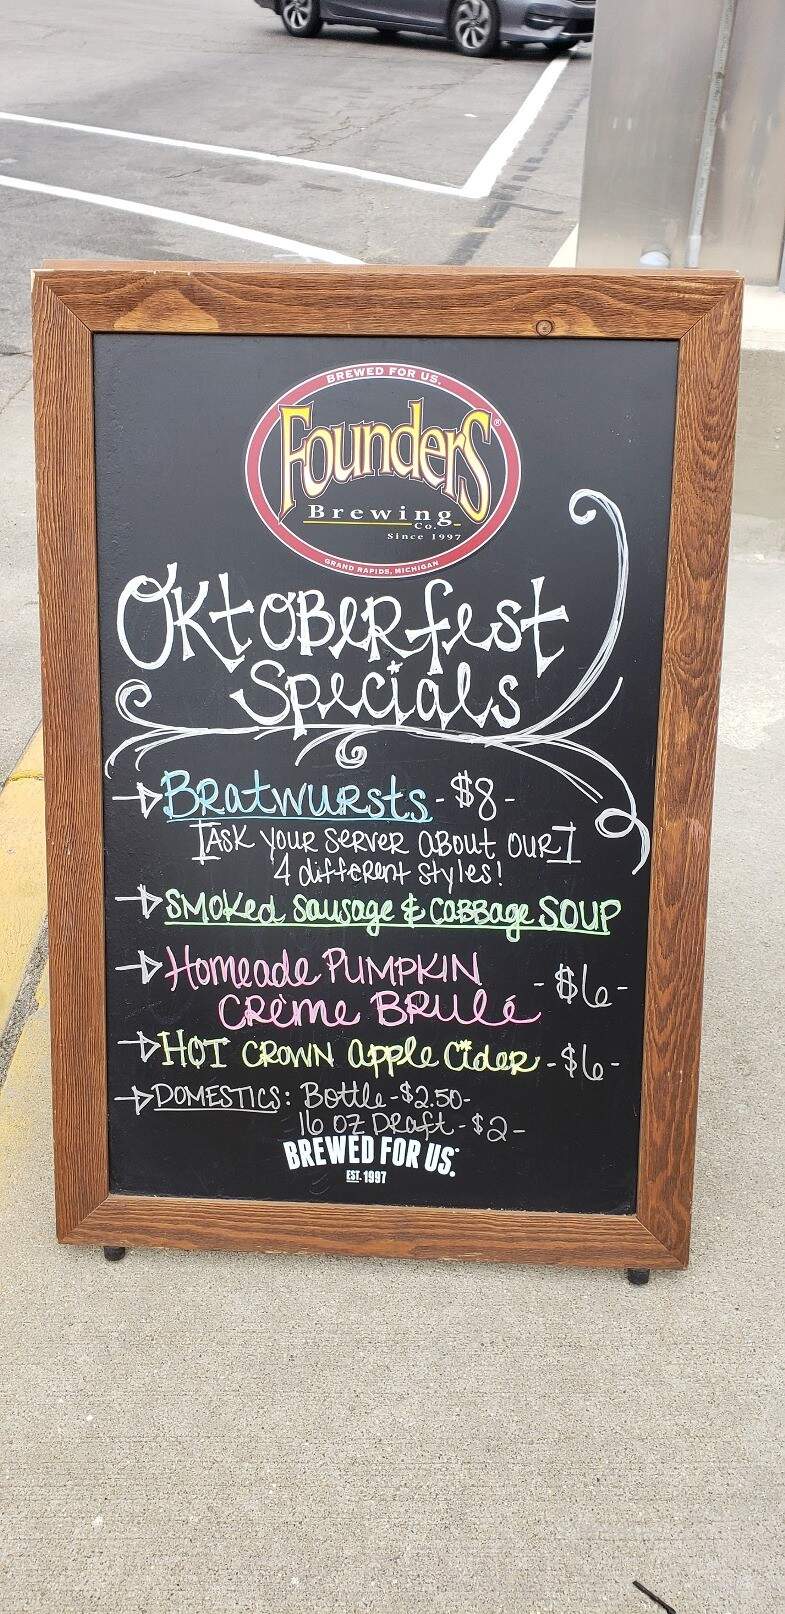 BREWED FOR US.
Founders®
Brewing
Co.
Since 1997
GRAND RAPIDS, MICHIGAN
OKtOBeRfest
Specials
→ BRatwuRsts - $8 -
[ASK YOUR SeRveR ABOut OUR]
4 diffeRent styles!
→ SMOKed Sausage & CaBBage SOUP
→ Homeade PUMPKIN - $6 -
CRème BRULé
→ HOT CROWN apple CideR - $6 -
→ DOMESTICS: Bottle - $2.50 -
16 OZ DRaft - $2 -
BREWED FOR US.
EST. 1997